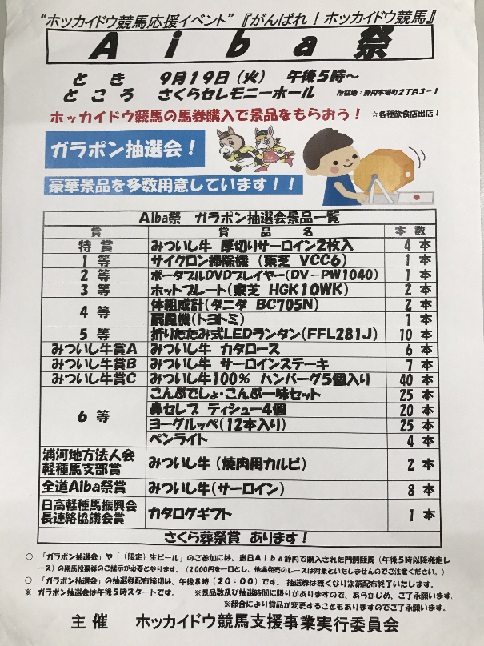 "ホッカイドウ競馬応援イベント"『がんばれ！ホッカイドウ競馬』
Aiba祭
とき 9月19日（火） 午後5時～
ところ さくらセレモニーホール
ホッカイドウ競馬の馬券購入で景品をもらおう！ ☆各種飲食店出店！
ガラポン抽選会！
豪華景品を多数用意しています！！
Aiba祭 ガラポン抽選会景品一覧
賞 賞品名 本数
特賞 みついし牛 厚切りサーロイン2枚入 4本
1等 サイクロン掃除機（東芝 VCC6） 1本
2等 ポータブルDVDプレイヤー(DV-PW1040) 1本
3等 ホットプレート(東芝 HGK10WK) 2本
4等 体組成計(タニタ BC705N) 2本
扇風機(トヨトミ) 1本
5等 折りたたみ式LEDランタン(FFL281J) 10本
みついし牛賞A みついし牛 カタロース 6本
みついし牛賞B みついし牛 サーロインステーキ 7本
みついし牛賞C みついし牛100% ハンバーグ5個入り 40本
6等 こんぶでしょ・こんぶ一味セット 25本
鼻セレブ ティシュー4個 20本
ヨーグルッペ(12本入り) 25本
ペンライト 4本
浦河地方法人会軽種馬支部賞 みついし牛（焼肉用カルビ） 2本
全道Aiba祭賞 みついし牛(サーロイン) 8本
日高軽種馬振興会長連絡協議会賞 カタログギフト 1本
さくら葬祭賞 あります！
○ 「ガラポン抽選会」や「（限定）生ビール」のご参加には、当日Aiba静内で購入された門別競馬（午後5時以降発走レース）の勝馬投票券のご提示が必要となります。（2000円を一口とし、
○ 「ガラポン抽選会」の抽選券配布締切は、午後8時（20：00）です。 抽選券は無くなり次第配布終了いたします。
※ ガラポン抽選会は午後5時スタートです。 ※景品数及び抽選時間に限りがありますので、あらかじめ、ご了承願います。
※都合により賞品が変更することもありますのでご了承願います。
主催 ホッカイドウ競馬支援事業実行委員会